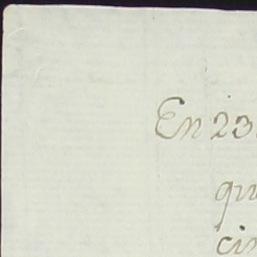 En 23
qu
cin